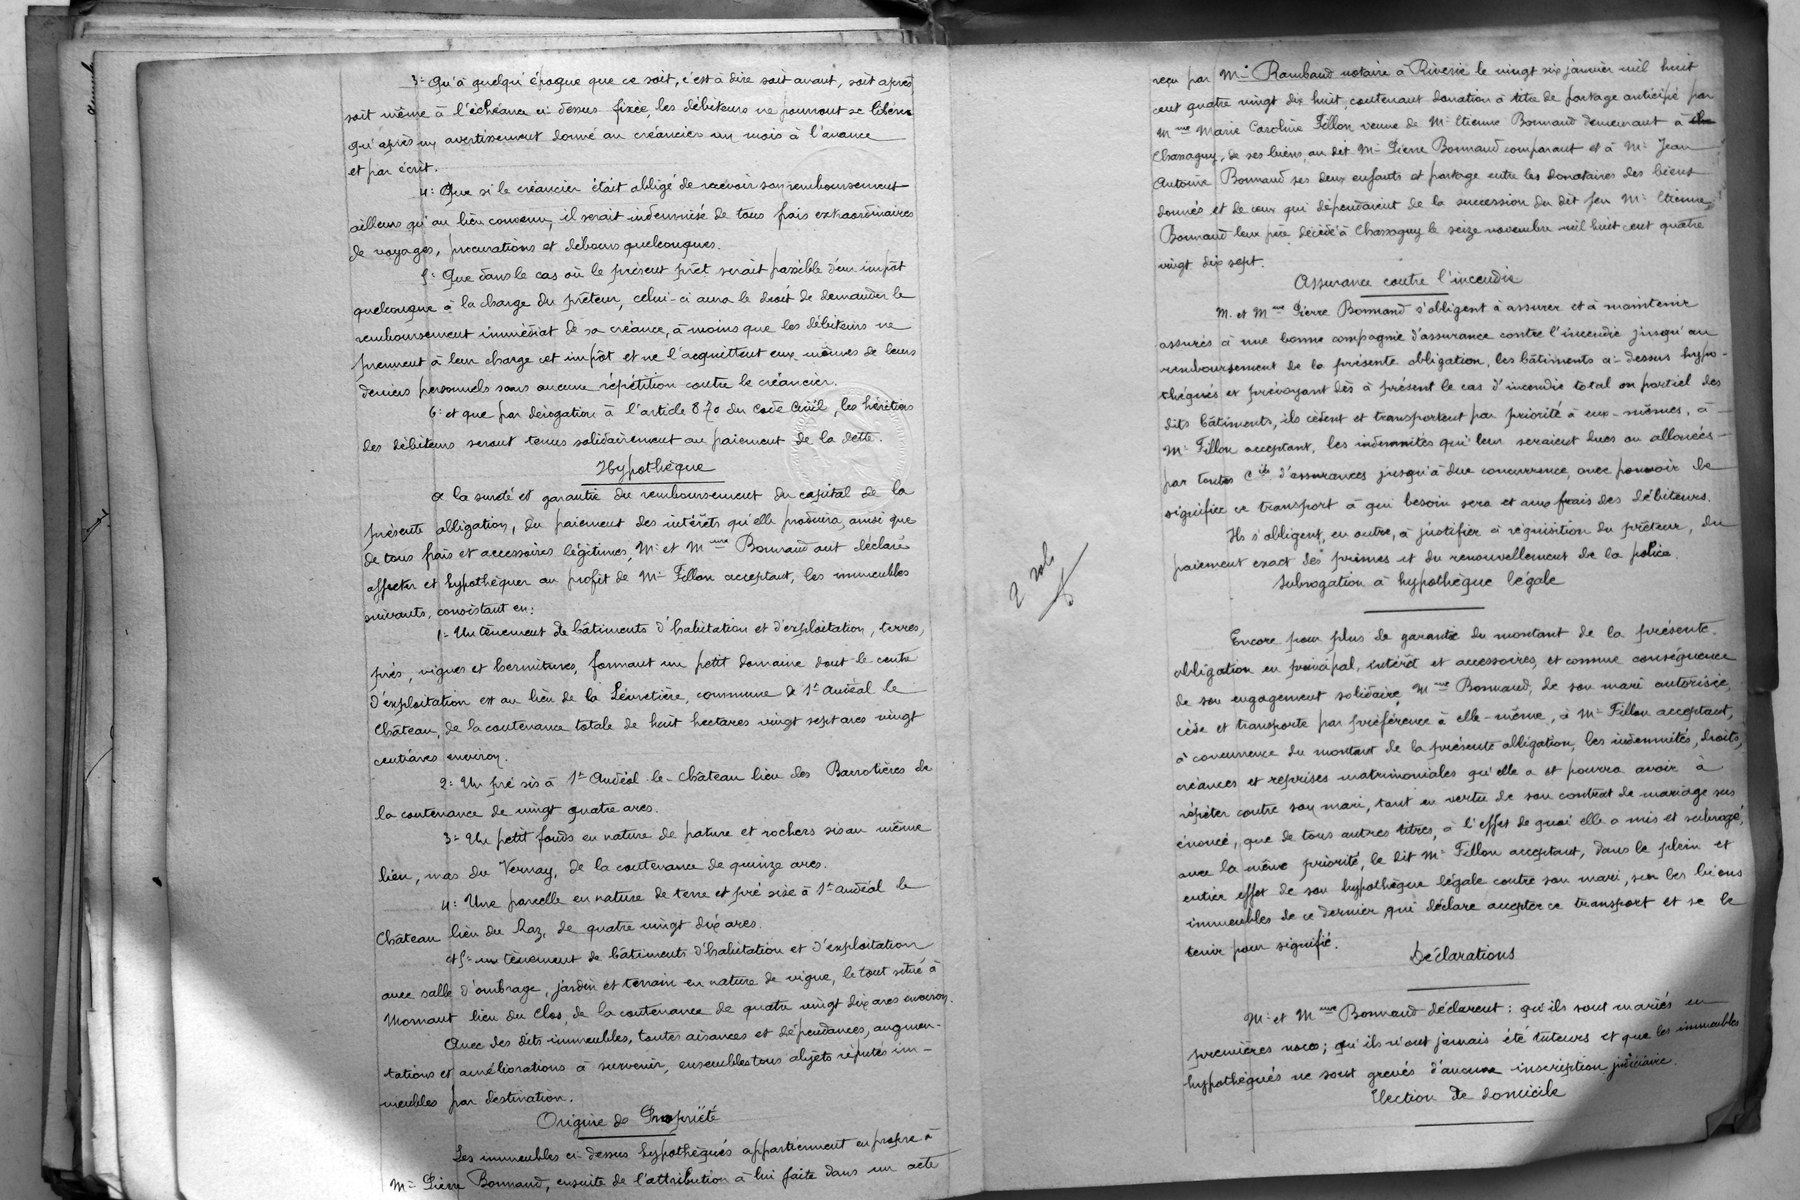 3° Qu'à quelqu'époque que ce soit, c'est à dire soit avant, soit après
soit même à l'échéance ci-dessus fixée, les débiteurs ne pourront se libérer
qu'après un avertissement donné au créancier un mois à l'avance
et par écrit.
4° Que si le créancier était obligé de recevoir son remboursement
ailleurs qu'au lieu convenu, il serait indemnisé de tous frais extraordinaires
de voyages, procurations et débours quelconques.
5° Que dans le cas où le présent prêt serait passible d'un impôt
quelconque à la charge du prêteur, celui-ci aura le droit de demander le
remboursement immédiat de sa créance, à moins que les débiteurs ne
prennent à leur charge cet impôt et ne l'acquittent eux-mêmes de leurs
deniers personnels sans aucune répétition contre le créancier.
6° et que par dérogation à l'article 870 du Code Civil, les héritiers
des débiteurs seront tenus solidairement au paiement de la dette.
Hypothèque
A la sureté et garantie du remboursement du capital de la
présente obligation, du paiement des intérêts qu'elle produira, ainsi que
de tous frais et accessoires légitimes, Mr et Mme Bonnaud ont déclaré
affecter et hypothéquer au profit de Mr Fillon acceptant, les immeubles
suivants, consistant en:
1° Un tènement de bâtiments d'habitation et d'exploitation, terres,
prés, vignes et hermitures, formant un petit domaine dont le centre
d'exploitation est au lieu de la Lévretière, commune de St Andéol le
Château, de la contenance totale de huit hectares vingt sept ares vingt
centiares environ.
2° Un pré sis à St Andéol-le-Château lieu des Barrotières de
la contenance de vingt quatre ares.
3° Un petit fonds en nature de pature et rochers sis au même
lieu, mas du Vernay, de la contenance de quinze ares.
4° Une parcelle en nature de terre et pré sise à St Andéol le
Château lieu du Raz, de quatre vingt dix ares.
et 5° un tènement de bâtiments d'habitation et d'exploitation
avec salle d'ombrage, jardin et terrain en nature de vigne, le tout situé à
Mornant lieu du Clos, de la contenance de quatre vingt dix ares environ.
Avec des dits immeubles, toutes aisances et dépendances, augmen-
tations et améliorations à survenir, ensembles tous objets réputés im-
meubles par destination.
Origine de Propriété
Les immeubles ci-dessus hypothéqués appartiennent en propre à
Mr Pierre Bonnaud, ensuite de l'attribution à lui faite dans un acte
2 rols
reçu par Me Rambaud notaire à Riverie le vingt six janvier mil huit
cent quatre vingt dix huit, contenant donation à titre de partage anticipé par
Mme Marie Caroline Fillon veuve de Mr Etienne Bonnaud demeurant à
Chassagny, de ses biens, au dit Mr Pierre Bonnaud comparant et à Mr Jean
Antoine Bonnaud ses deux enfants et partage entre les donataires des biens
donnés et de ceux qui dépendaient de la succession du dit feu Mr Etienne
Bonnaud leur père décédé à Chassagny le seize novembre mil huit cent quatre
vingt dix sept.
Assurance contre l'incendie
M. et Mme Pierre Bonnaud s'obligent à assurer et à maintenir
assurés à une bonne compagnie d'assurance contre l'incendie jusqu'au
remboursement de la présente obligation, les bâtiments ci-dessus hypo-
théqués et prévoyant dès à présent le cas d'incendie total ou partiel des
dits bâtiments, ils cèdent et transportent par priorité à eux-mêmes, à
Mr Fillon acceptant, les indemnités qui leur seraient dues ou allouées
par toutes Cies d'assurances jusqu'à due concurrence, avec pouvoir de
signifier ce transport à qui besoin sera et aux frais des débiteurs.
Ils s'obligent, en outre, à justifier à réquisition du prêteur, du
paiement exact des primes et du renouvellement de la police.
Subrogation à hypothèque légale
Encore pour plus de garantie du montant de la présente
obligation en principal, intérêt et accessoires, et comme conséquence
de son engagement solidaire, Mme Bonnaud, de son mari autorisée,
cède et transporte par préférence à elle-même, à Mr Fillon acceptant,
à concurrence du montant de la présente obligation, les indemnités, droits,
créances et reprises matrimoniales qu'elle a et pourra avoir à
répéter contre son mari, tant en vertu de son contrat de mariage sus
énoncé, que de tous autres titres, à l'effet de quoi elle a mis et subrogé,
avec la même priorité, le dit Mr Fillon acceptant, dans le plein et
entier effet de son hypothèque légale contre son mari, sur les biens
immeubles de ce dernier, qui déclare accepter ce transport et se le
tenir pour signifié.
Déclarations
Mr et Mme Bonnaud déclarent: qu'ils sont mariés en
premières noces; qu'ils n'ont jamais été tuteurs et que les immeubles
hypothéqués ne sont grevés d'aucune inscription judiciaire.
Election de domicile